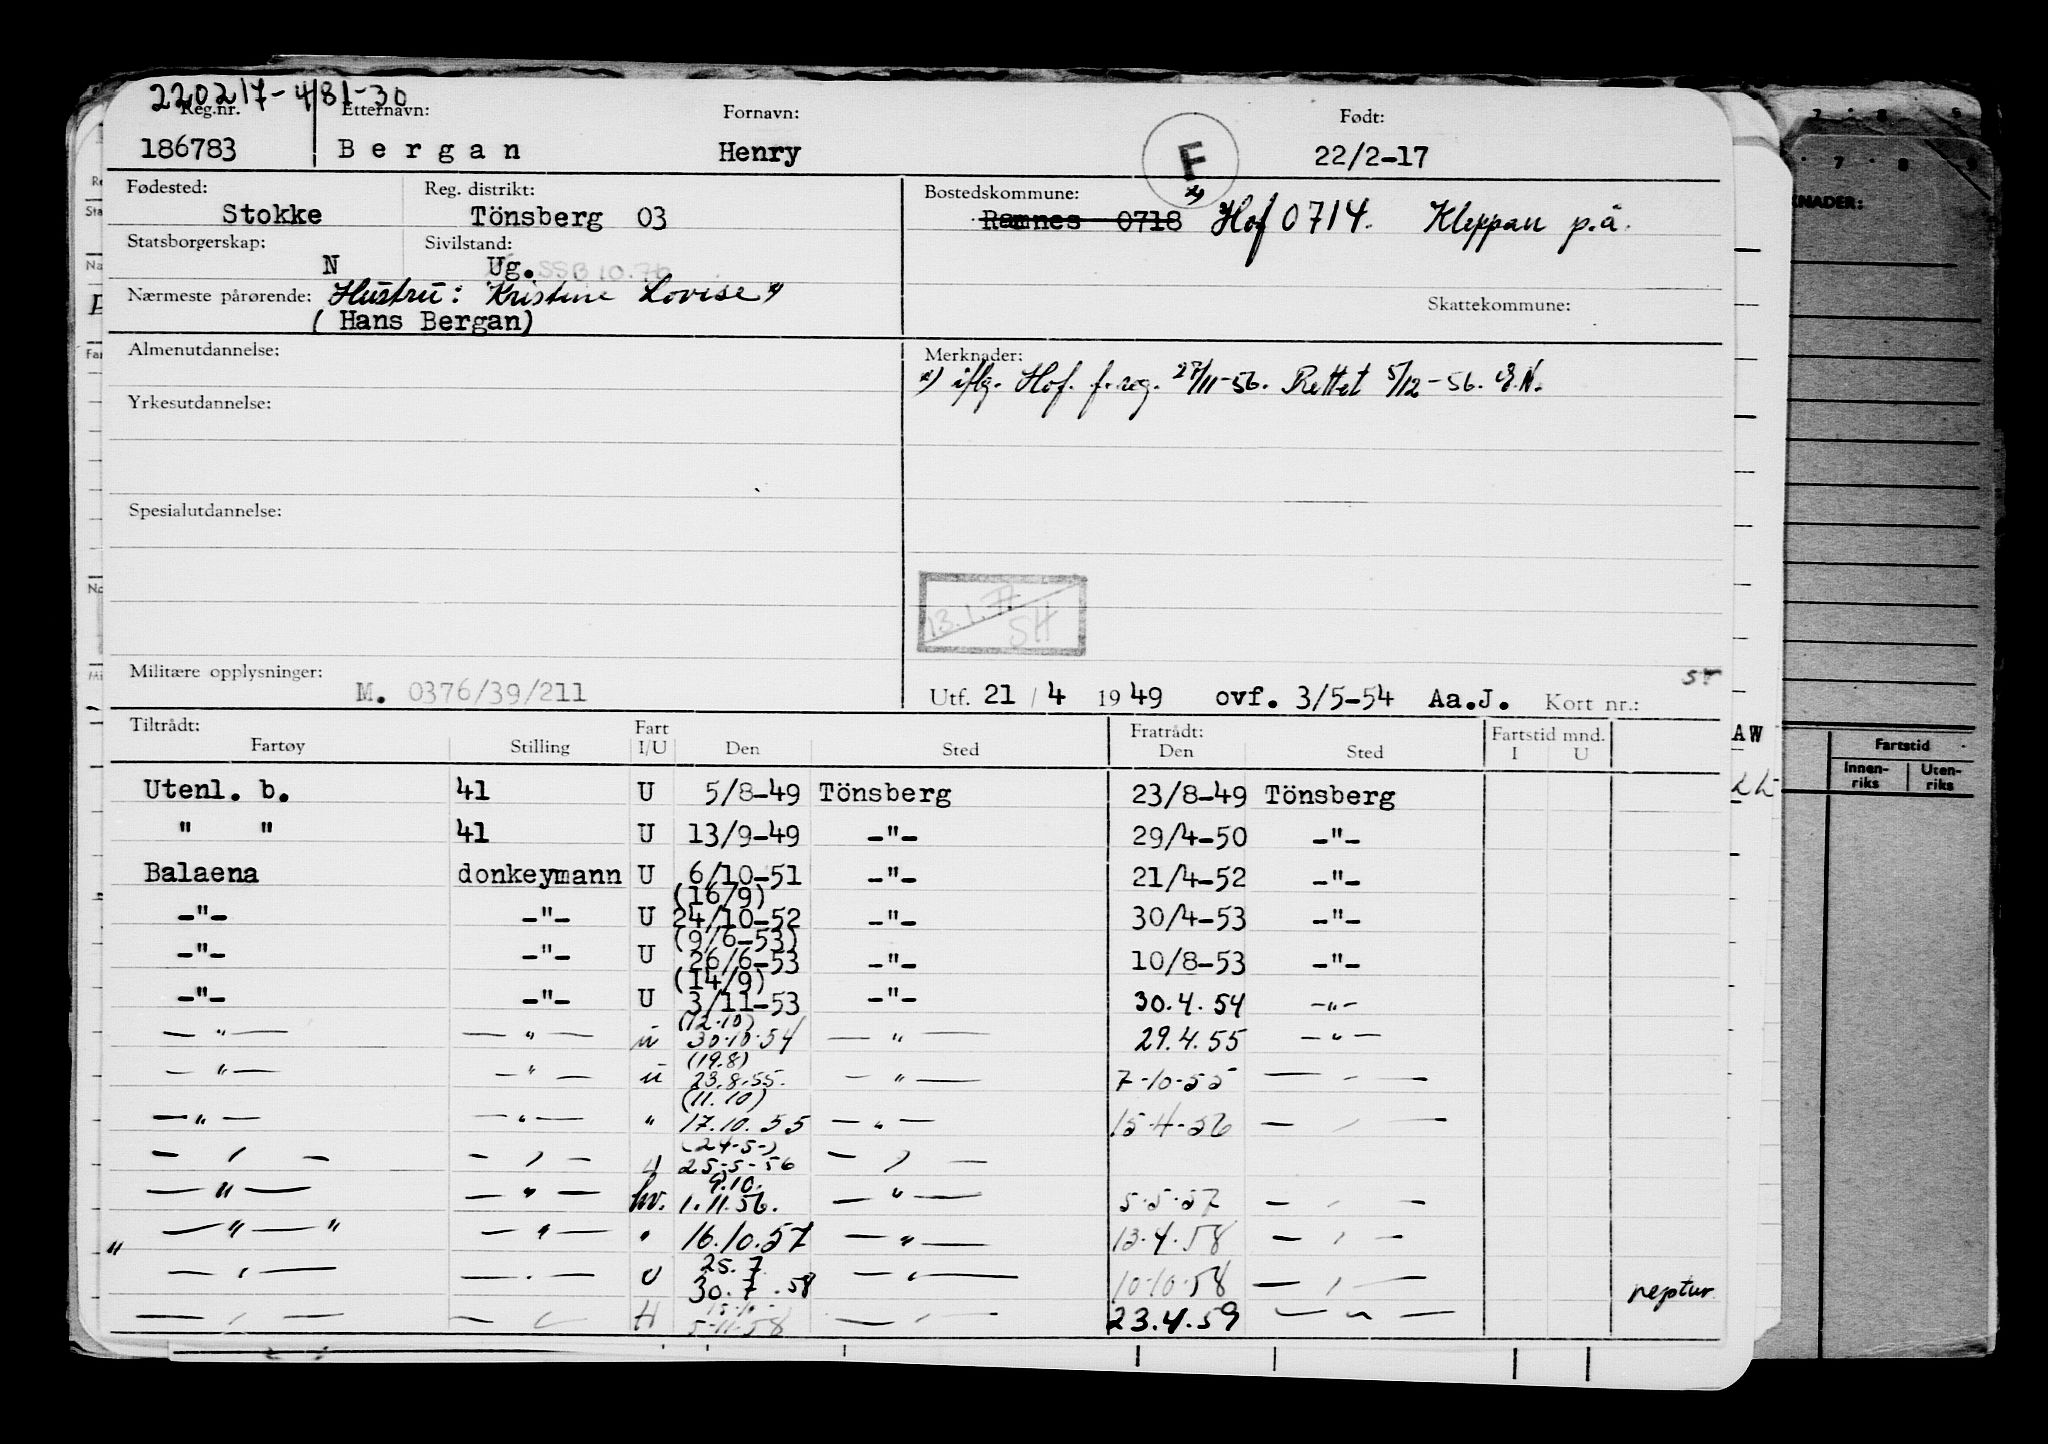 220217-48130
Reg.nr. Etternavn: Fornavn: Født:
186783 Bergan Henry F 22/2-17
*)
Fødested: Reg. distrikt: Bostedskommune:
Stokke Tönsberg 03 Ramnes 0718 Hof 0714. Kleppan p.å.
Statsborgerskap: Sivilstand:
N Ug. SSB 10.76
Nærmeste pårørende: Hustru: Kristine Lovise *)
(Hans Bergan) Skattekommune:
Almenutdannelse: Merknader:
*) iflg. Hof. f.reg. 27/11-56. Rettet 5/12-56. E.N.
Yrkesutdannelse:
Spesialutdannelse:
13.1.
SH
Militære opplysninger:
M. 0376/39/211 Utf. 21/4 1949 ovf. 3/5-54 Aa.J. Kort nr.:
Tiltrådt: Fart Fratrådt: Fartstid mnd.
Fartøy Stilling I/U Den Sted Den Sted I U
Utenl. b. 41 U 5/8-49 Tönsberg 23/8-49 Tönsberg
" " 41 U 13/9-49 -"- 29/4-50 -"-
Balaena donkeymann U 6/10-51 -"- 21/4-52 -"-
(16/9)
-"- -"- U 24/10-52 -"- 30/4-53 -"-
(9/6-53)
-"- -"- U 26/6-53 -"- 10/8-53 -"-
(14/9)
-"- -"- U 3/11-53 -"- 30.4.54 -"-
(12.10)
-"- -"- u 30.10.54 -"- 29.4.55 -"-
(19.8)
-"- -"- u 23.8.55. -"- 7-10-55 -"-
(11.10)
-"- -"- " 17.10.55 -"- 15-4-56 -"-
(24-5-)
-"- -"- 25-5-56 -"-
9.10.
-"- -"- hv. 1.11.56. -"- 5-5-57 -"-
-"-" -"- " 16.10.57 -"- 13-4-58 -"-
"
25.7
-"- -"- U 30.7.58 -"- 10-10-58 -"- neptur
15-10-
-"- -"- H 5-11-58 -"- 23.4.59 -"-
KNADER:
AW
Fartstid
Innen-riks Uten-riks